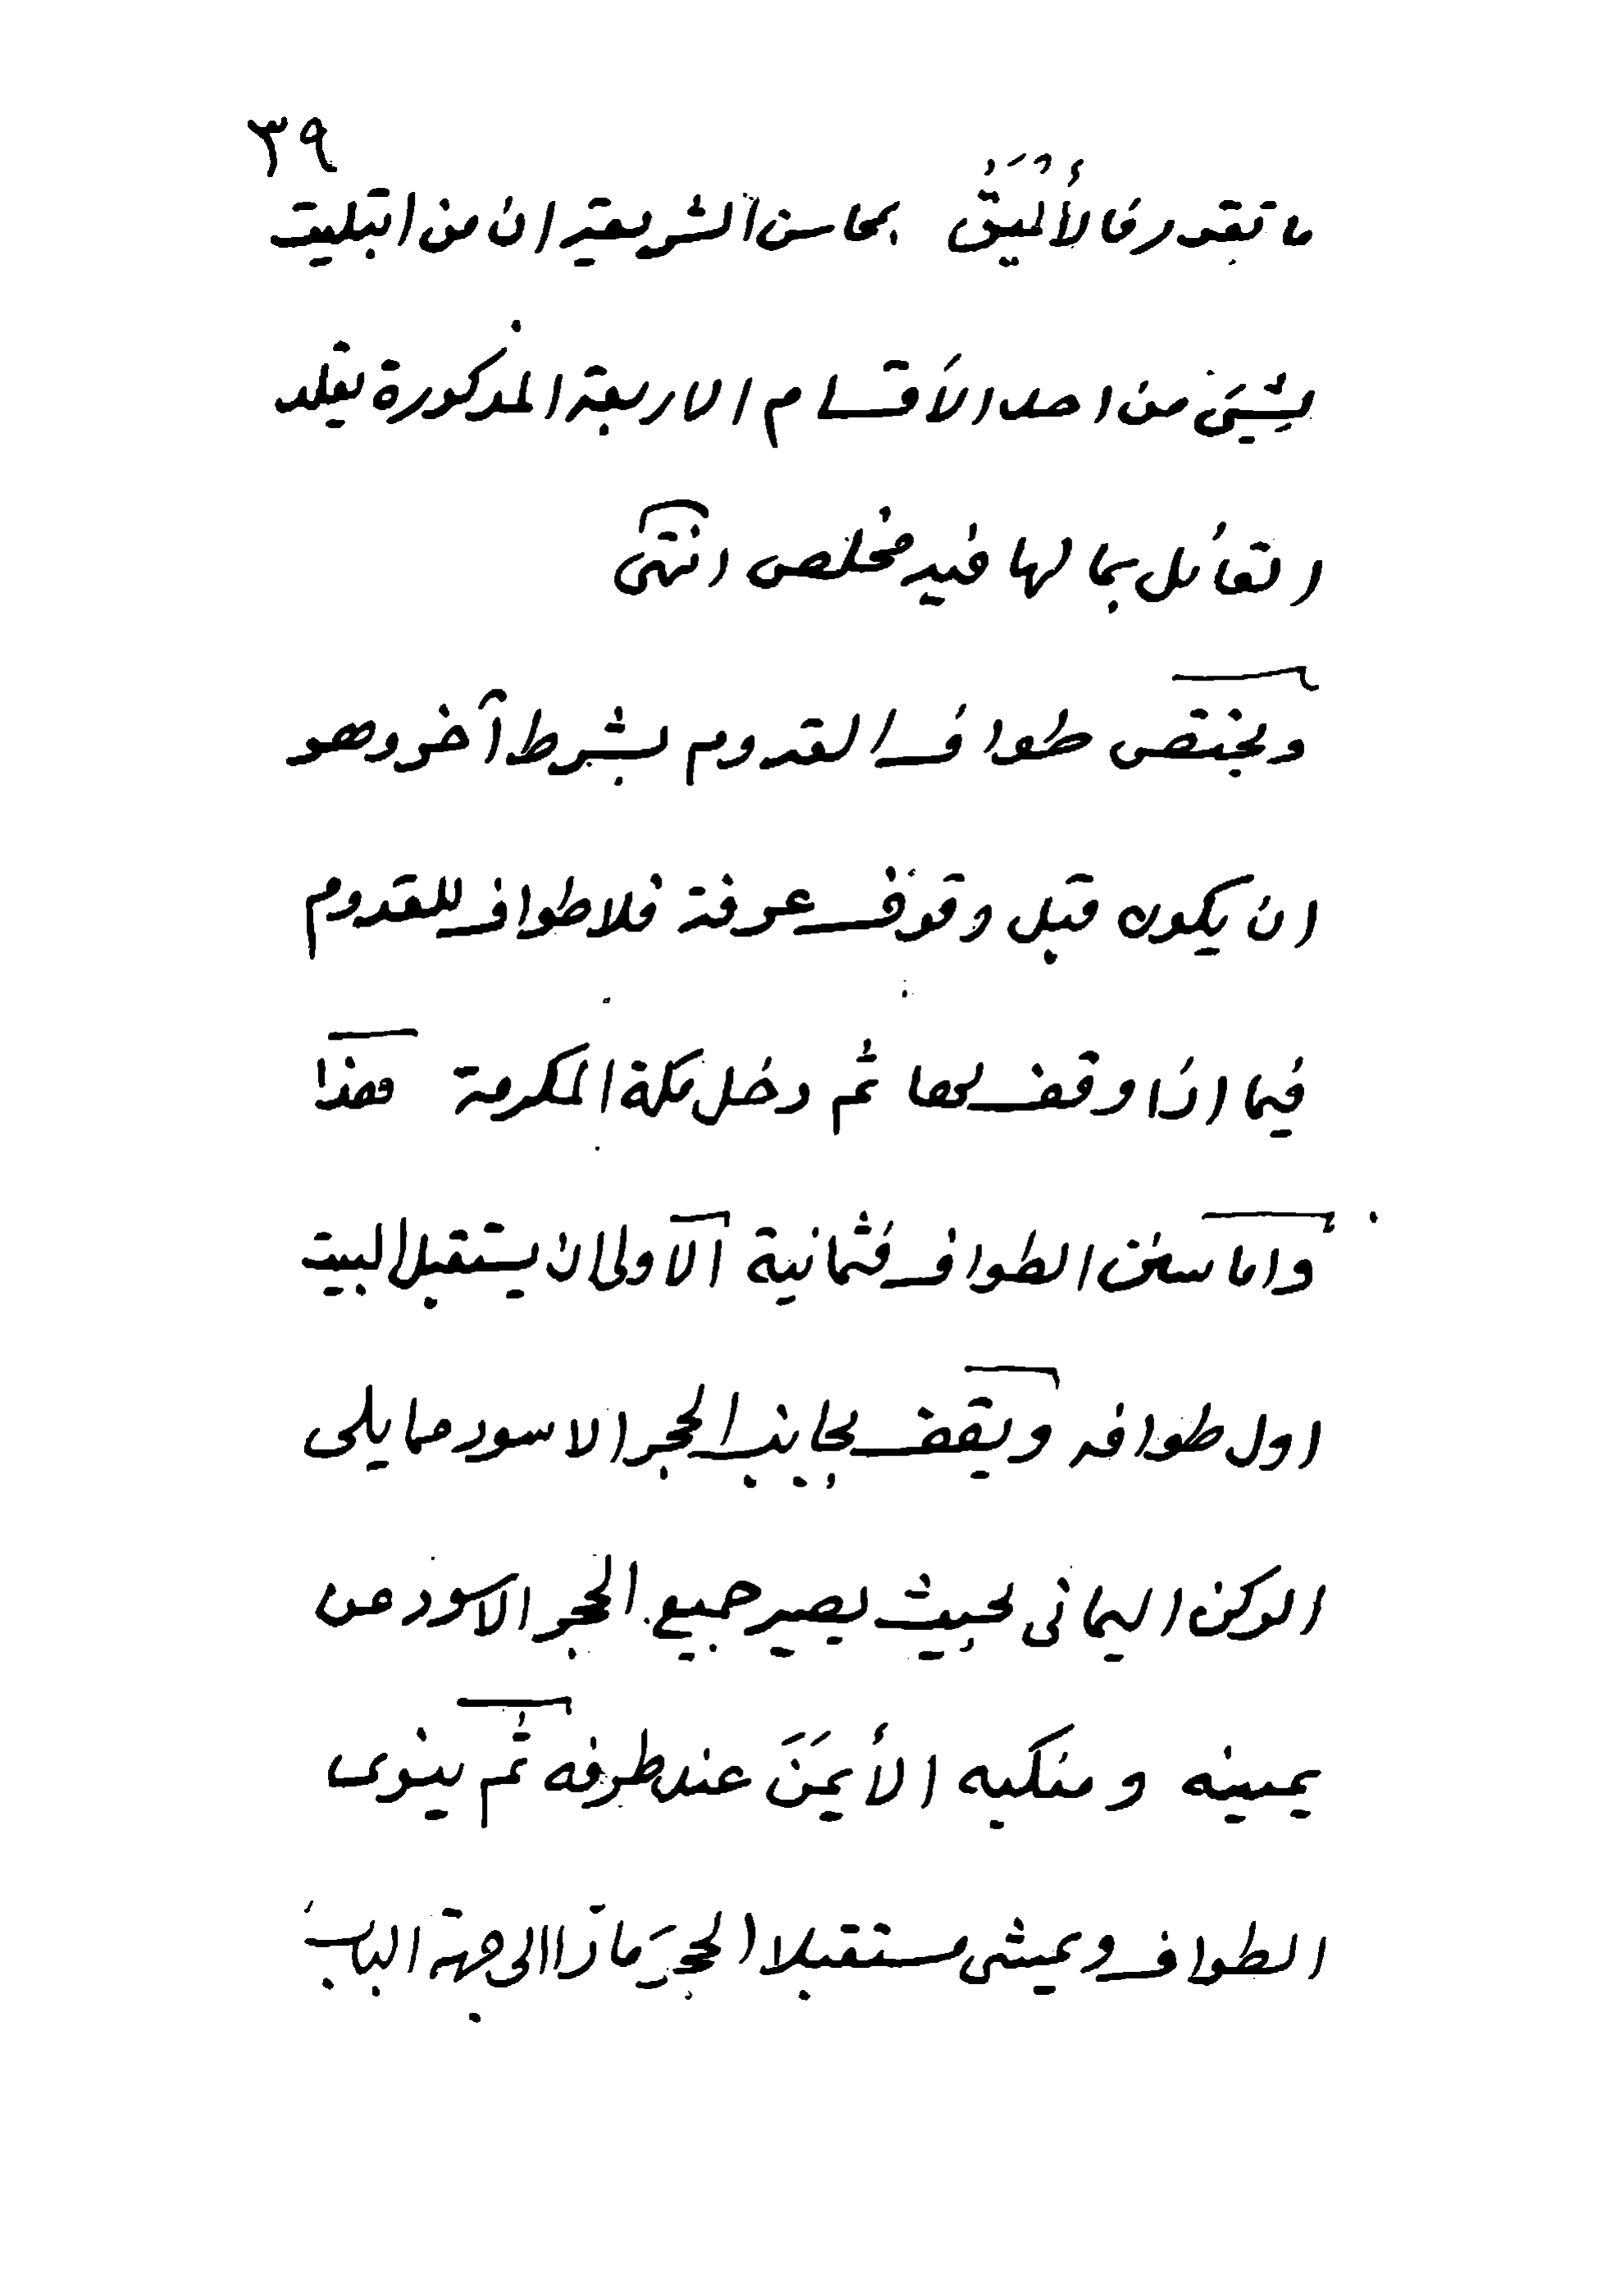 ٣٩
ما تقدر فالأَلْيَقُ بمحاسن الشريعة ان من ابتليت
بشيئ من احد الأقسام الاربعة المذكورة يقلد
القائل بما لها فيه مخلص انتهى
ويختص طواف القدوم بشرط آخر وهو
ان يكون قبل وقوف عرفة فلا طواف للقدوم
فيما اذا وقف بها ثم دخل مكة المكرمة هذا
واما سنن الطواف فثمانية الأولى ان يستقبل البيت
اول طوافه ويقف بجانب الحجر الاسود مما يلى
الركن اليمانى بحيث يصير جميع الحجر الاسود عن
يمينه ومنكبه الأيمَنَ عند طرفه ثم ينوى
الطواف ويمشى مستقبلا الحجرَ مارّا الى جهة الباب